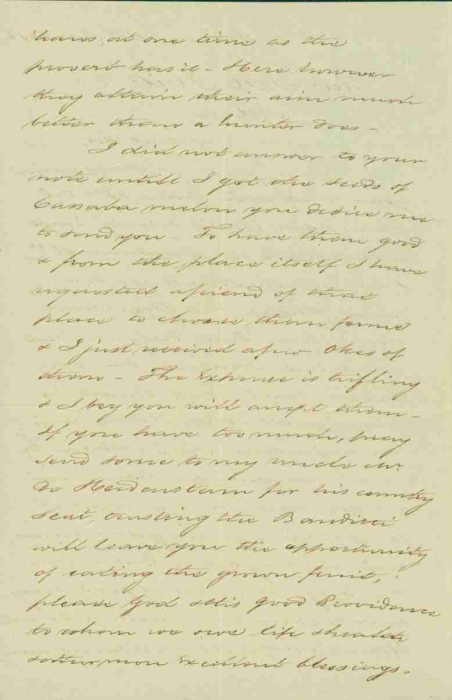 hares at one time as the
proverb has it - Here however
they attain their aim much
better than a hunter does -
I did not answer to your
note untill I got the seeds of
Cassaba melon you desire me
to send you - To have them good
& from the place itself I have
requested a friend of that
place to choose them for me
& I just received a few Okes of
them - The Expense is trifling
& I beg you will accept them -
If you have too much, pray
send some to my uncle Mr
De Heidenstam for his country
seat, trusting the Banditti
will leave you the opportunity
of eating the grown fruit,
please God & His good Providence
to whom we owe life & health
& other more Excellent blessings -